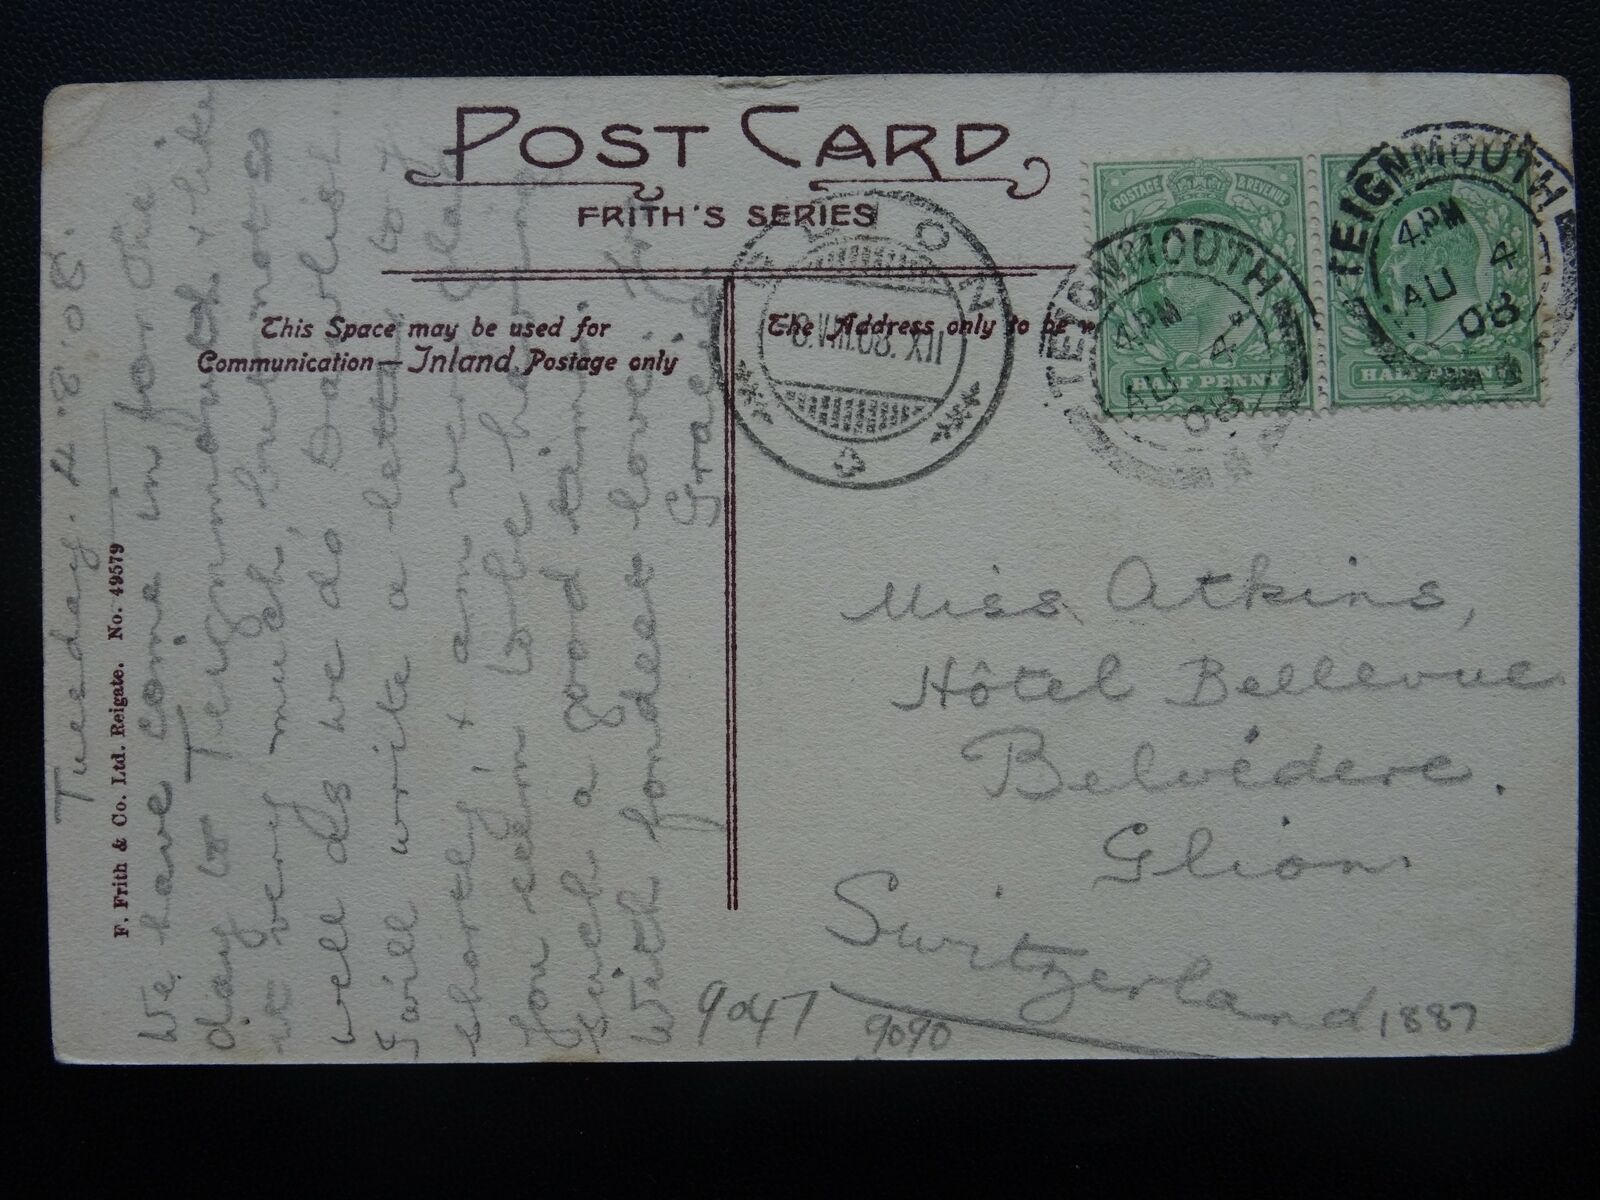 POST CARD
FRITH'S SERIES
This Space may be used for
Communication — Inland Postage only
The Address only to be
F. Frith & Co. Ltd. Reigate. No. 49579
Tuesday. 4.8.08.
We have come in for the
day to Teignmouth & like
it very much, but not so
well as we do Dawlish.
I will write a letter to
shortly & am very glad
you seem to be having
such a good time.
With fondest love from
Gracie
Miss Atkins,
Hôtel Bellevue
Belvédère.
Glion.
Switzerland
9047
9090
1887
POSTAGE & REVENUE
HALF PENNY
HALF PENNY
TEIGNMOUTH
4.PM
AU 4
08
TEIGNMOUTH
4.PM
AU 4
08
GLION
VIII.08. XII